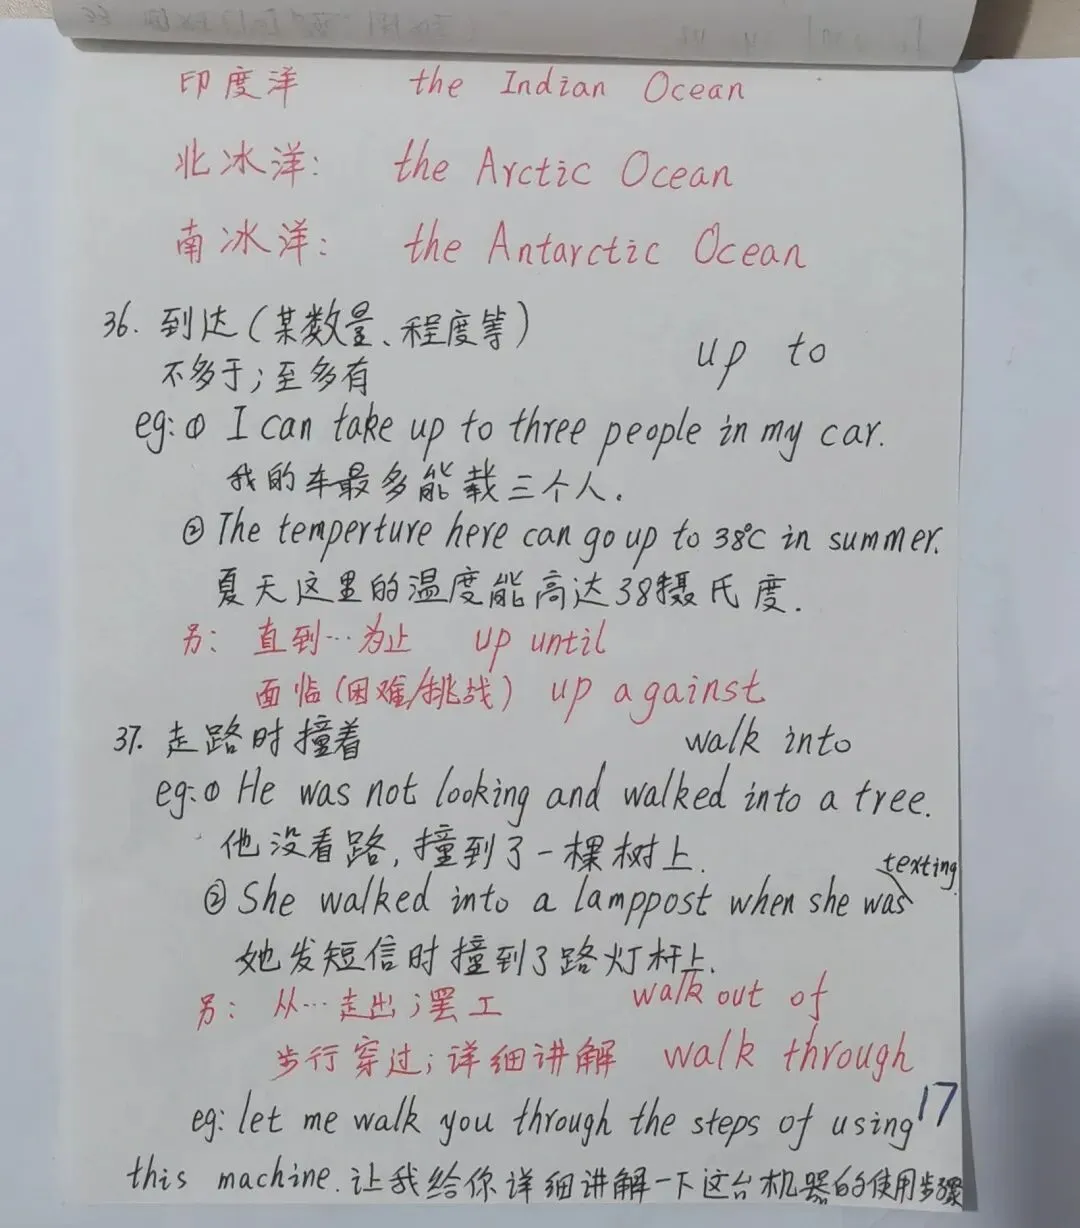 印度洋 the Indian Ocean
北冰洋: the Arctic Ocean
南冰洋: the Antarctic Ocean
36. 到达(某数量、程度等) up to
不多于;至多有
eg: ① I can take up to three people in my car.
我的车最多能载三个人.
② The temperture here can go up to 38℃ in summer.
夏天这里的温度能高达38摄氏度.
另: 直到…为止 up until
面临(困难/挑战) up against
37. 走路时撞着 walk into
eg: ① He was not looking and walked into a tree.
他没看路,撞到了一棵树上.
② She walked into a lamppost when she was texting.
她发短信时撞到了路灯杆上.
另: 从…走出;罢工 walk out of
步行穿过;详细讲解 walk through
eg: let me walk you through the steps of using
this machine. 让我给你详细讲解一下这台机器的使用步骤
17